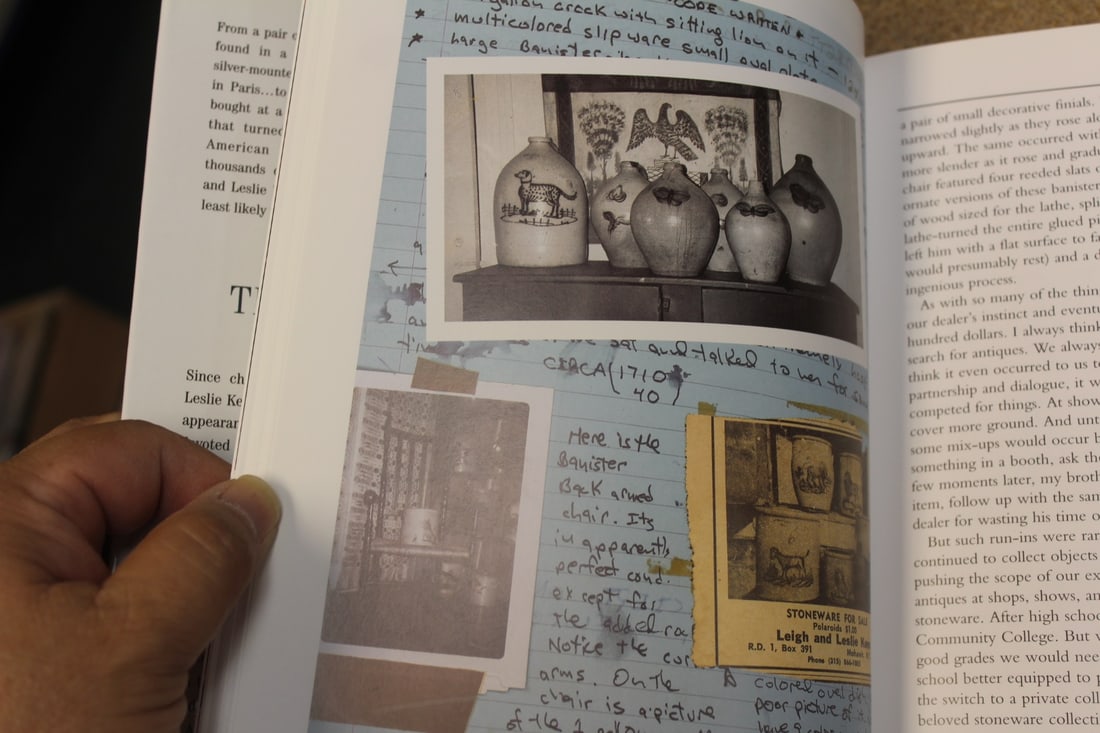 From a pair
found in a
silver-mounte
in Paris...to
bought at a
that turned
American
thousands
and Leslie
least likely
T
Since ch
Leslie Ke
appearan
voted
CODE WRITTEN
gallon crock with sitting lion on it -
* multicolored slipware small oval plate
* Large Banister
sat and talked to her for
CIRCA (1710
40)
Here is the
Banister
Back armed
chair. Its
in apparently
perfect cond.
except for
the added roc
Notice the cor
arms. On the
chair is a picture
of the 2 gallon
STONEWARE FOR SAL
Polaroids $1.00
Leigh and Leslie Ken
R.D. 1, Box 391
Mohawk, N
Phone (315) 866-1085
colored oval dis
poor picture of
a pair of small decorative finials.
narrowed slightly as they rose alo
upward. The same occurred wit
more slender as it rose and gradu
chair featured four reeded slats
ornate versions of these banister
of wood sized for the lathe, spli
lathe-turned the entire glued pi
left him with a flat surface to fa
would presumably rest) and a d
ingenious process.
As with so many of the thin
our dealer's instinct and eventu
hundred dollars. I always think
search for antiques. We always
think it even occurred to us to
partnership and dialogue, it w
competed for things. At show
cover more ground. And unt
some mix-ups would occur b
something in a booth, ask the
few moments later, my broth
item, follow up with the sam
dealer for wasting his time o
But such run-ins were rar
continued to collect objects
pushing the scope of our ex
antiques at shops, shows, an
stoneware. After high schoo
Community College. But w
good grades we would need
school better equipped to p
the switch to a private coll
beloved stoneware collecti